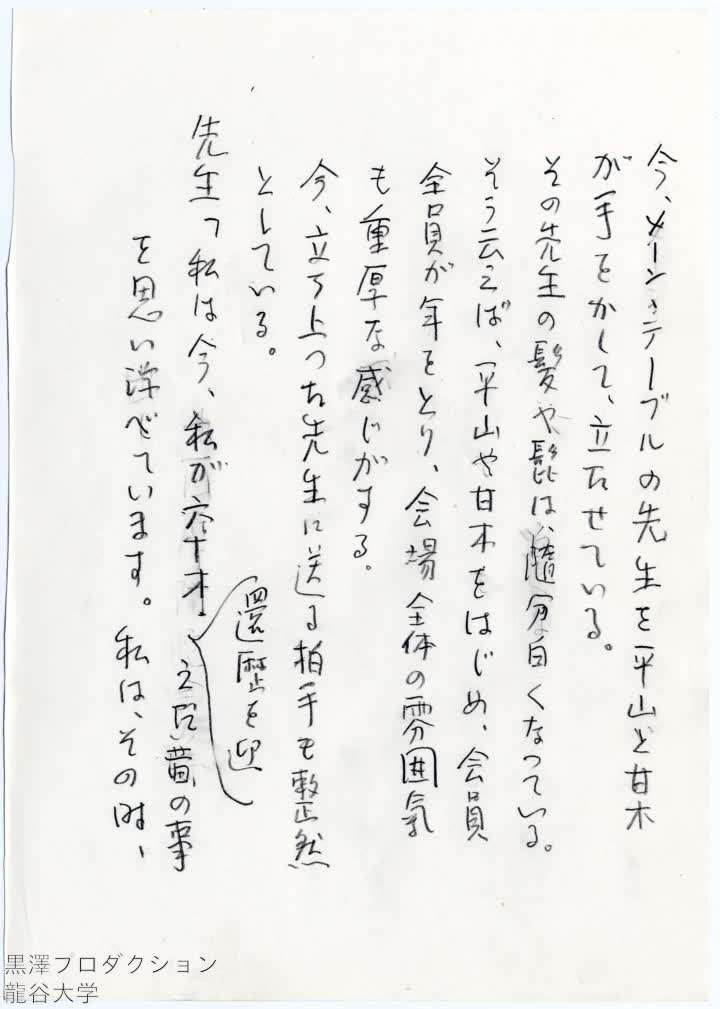 今、メーン・テーブルの先生を平山と甘木
が手をかして、立たせている。
その先生の髪や髭は、随分白くなっている。
そう云えば、平山や甘木をはじめ、会員
全員が年をとり、会場全体の雰囲気
も重厚な感じがする。
今、立ち上った先生に送る拍手も整然
としている。
先生「私は今、私が
還歴を迎
の事
を思い浮べています。私は、その時、
黒澤プロダクション
龍谷大学